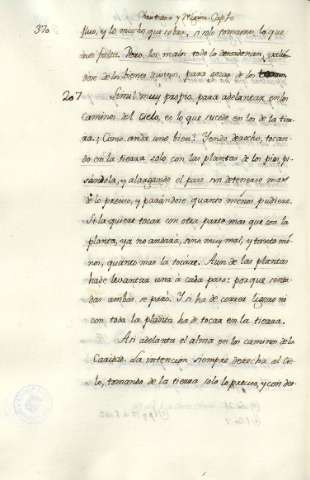 370
fluo, y lo mucho que sobra, si solo tomamos lo que
nos falta. Pero los malos todo lo
de los bienes para de los
207 Simil muy propio, para adelantar en los
caminos del Cielo, es lo que sucede en los de la tie-
rra. Como anda uno bien? Yendo derecho, tocan-
do en la tierra solo con las plantas de los pies, pi-
sandola, y alargando el paso sin detenerse mas
de lo preciso, y pasandose quanto menos pudiere.
Si la quiere tocar con otra parte mas que con la
planta, ya no andará, sino muy mal, y tanto me-
nos, quanto mas la tocare. Aun de las plantas
hade levantar una à cada paso: porque senta-
das ambas se para. Y si ha de correr ligero ni
con toda la planta ha de tocar en la tierra.
Asi adelanta el alma en los caminos de la
Caridad. La intencion siempre derecha al Cie-
lo, tomando de la tierra solo lo preciso, y con des-